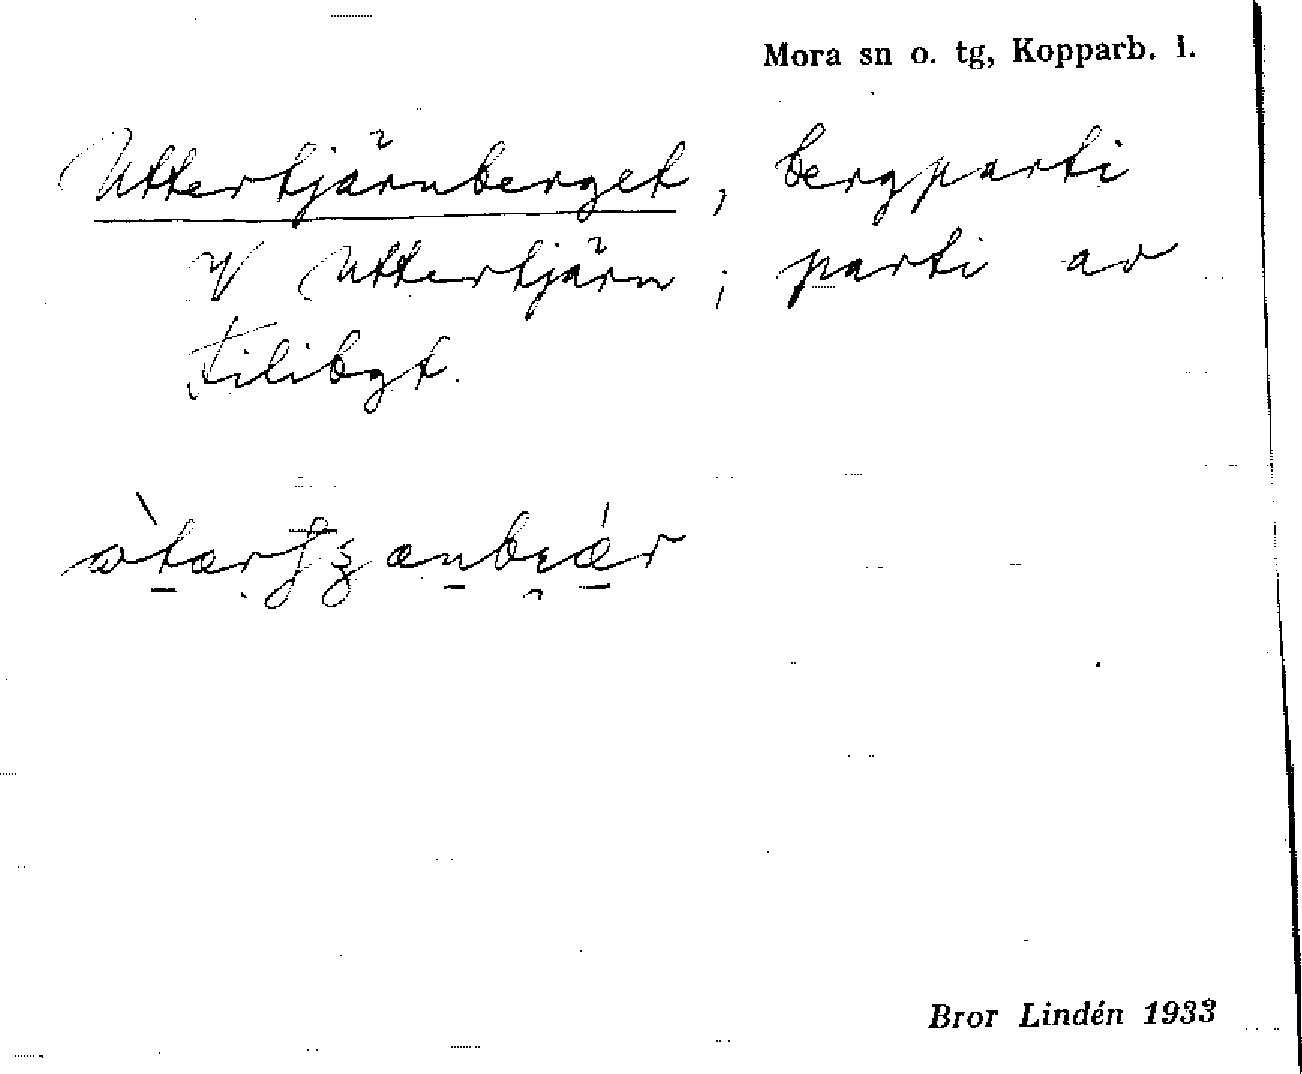 Mora sn o. tg, Kopparb. l.
Uttertjärnberget, bergparti
v/ Uttertjärn; parti av
Tilibgt.
Bror Lindén 1933